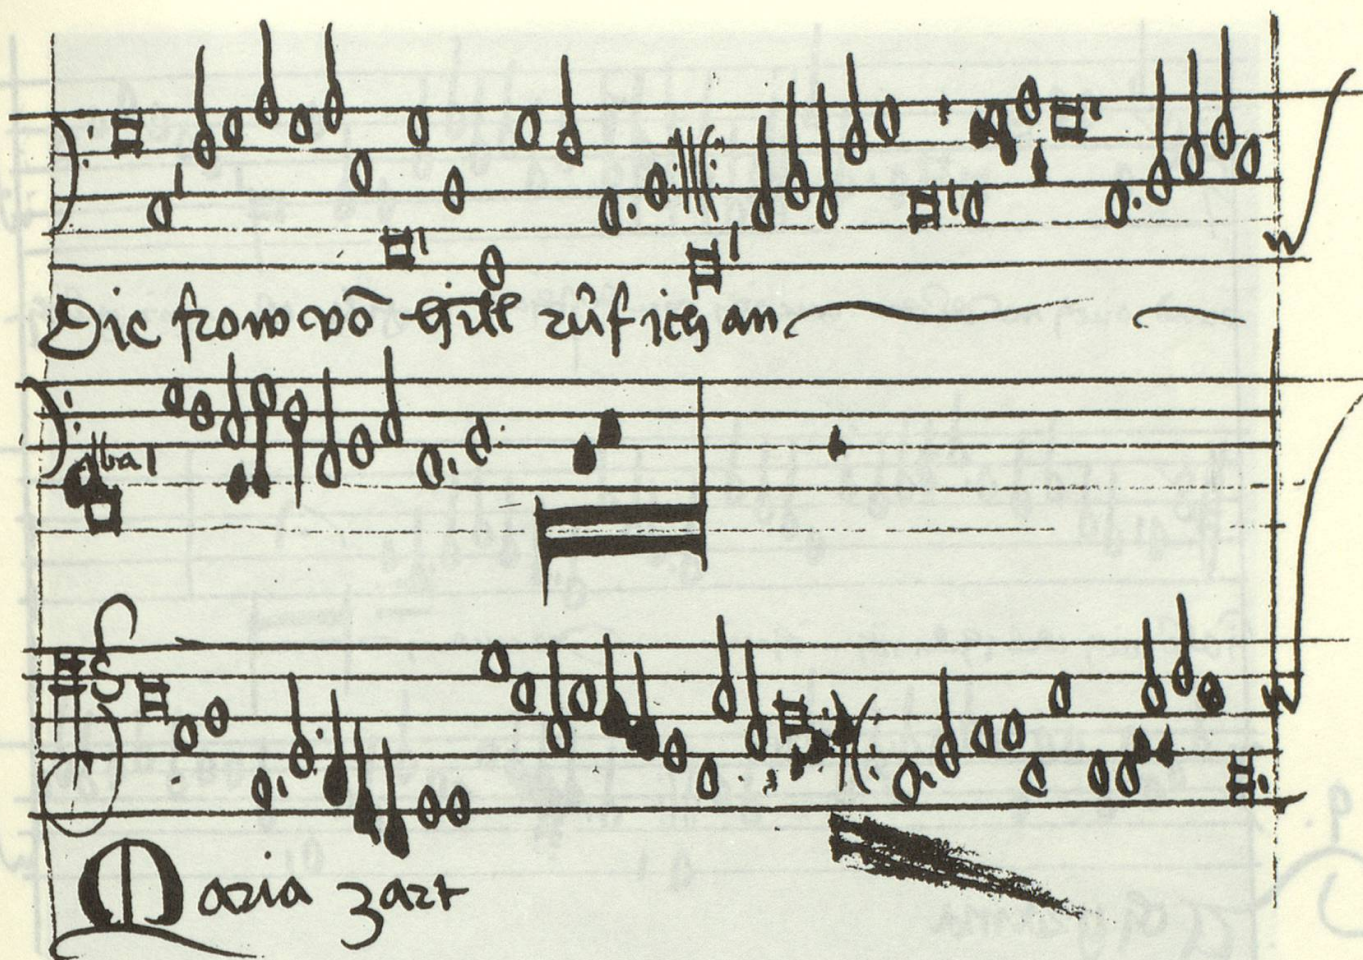 Die frow vō hill růf ich an
Maria zart